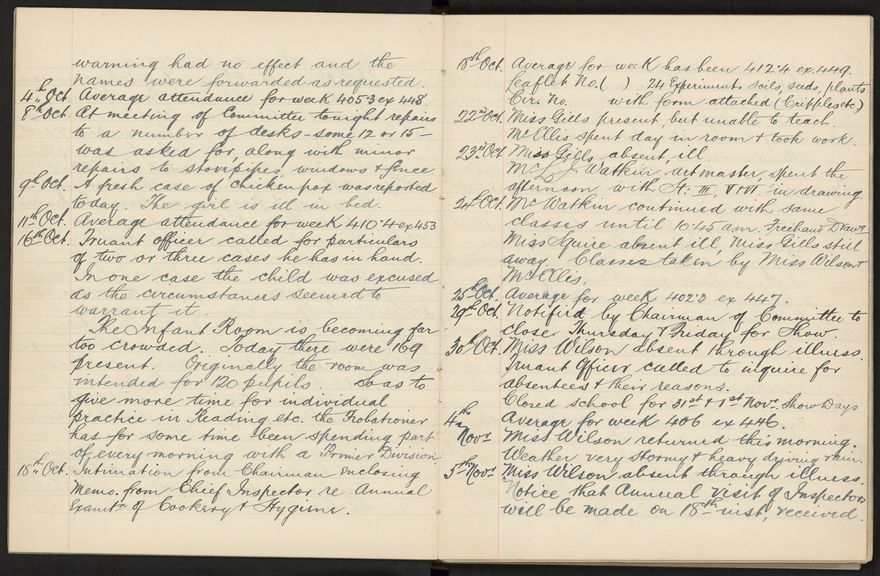 warning had no effect and the
names were forwarded as requested.
4th Oct. Average attendance for week 405.3 ex 448.
8th Oct. At meeting of Committee tonight repairs
to a number of desks - some 12 or 15 -
was asked for, along with minor
repairs to stovepipes, windows & fence.
9th Oct. A fresh case of chickenpox was reported
today. The girl is ill in bed.
11th Oct. Average attendance for week 410.4 ex 453
16th Oct. Truant Officer called for particulars
of two or three cases he has in hand.
In one case the child was excused
as the circumstances seemed to
warrant it.
The Infant Room is becoming far
too crowded. Today there were 169
present. Originally the room was
intended for 120 pupils. So as to
give more time for individual
practice in Reading etc. the Probationer
has for some time been spending part
of every morning with a Primer Division
18th Oct. Intimation from Chairman enclosing
Memo. from Chief Inspector re Annual
Examtn of Cookery & Hygiene.
18th Oct. Average for week has been 412.4 ex. 449.
Leaflet No. ( ) 24 Experiments soils, seeds, plants
Cir. No. with form attached (Cripples etc.)
22nd Oct. Miss Gills present, but unable to teach.
Mr Ellis spent day in room & took work.
23rd Oct. Miss Gills absent, ill.
Mr J. Watkin, art master, spent the
afternoon with St. III, V & VI in drawing.
24th Oct. Mr Watkin continued with same
classes until 10.45 a.m. Freehand Drawg
Miss Squire absent ill, Miss Gills still
away. Classes taken by Miss Wilson &
Mr Ellis.
25th Oct. Average for week 402.3 ex 447.
29th Oct. Notified by Chairman of Committee to
close Thursday & Friday for Show.
30th Oct. Miss Wilson absent through illness.
Truant Officer called to inquire for
absentees & their reasons.
Closed school for 31st & 1st Novr. Show Days
4th Average for week 406 ex 446.
Novr Miss Wilson returned this morning.
Weather very stormy & heavy driving rain.
5th Novr Miss Wilson absent through illness.
Notice that Annual visit of Inspectors
will be made on 18th inst, received.